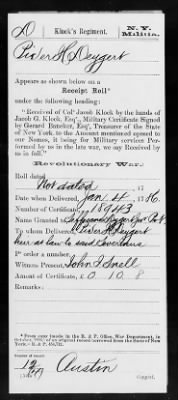 D Klock's Regiment. N. Y. Militia.
Peter H. Deygert
Appears as shown below on a
Receipt Roll*
under the following heading:
"Received of Colo Jacob Klock by the hands of
Jacob G. Klock, Esqr, Military Certificate Signed
by Gerard Bancker, Esqr, Treasurer of the State
of New York to the Amount mentioned opposed to
our Names, it being for Military services Per-
formed by us in the late war, we say Received by
us in full."
Revolutionary War.
Roll dated
Not dated 17
Date when Delivered, Jan 4 1786.
Number of Certificate, 18943
To whom Granted,
To whom Delivered, Peter H Deygert
heir as law to said
Pr order a number,
Witness Present, John I Snell
Amount of Certificate, £ 0 . 10 . 8
Remarks:
*From copy made in the R. & P. Office, War Department, in
New York.—R. & P. 436,711.
Number of record:
12
Austin
Copyist.